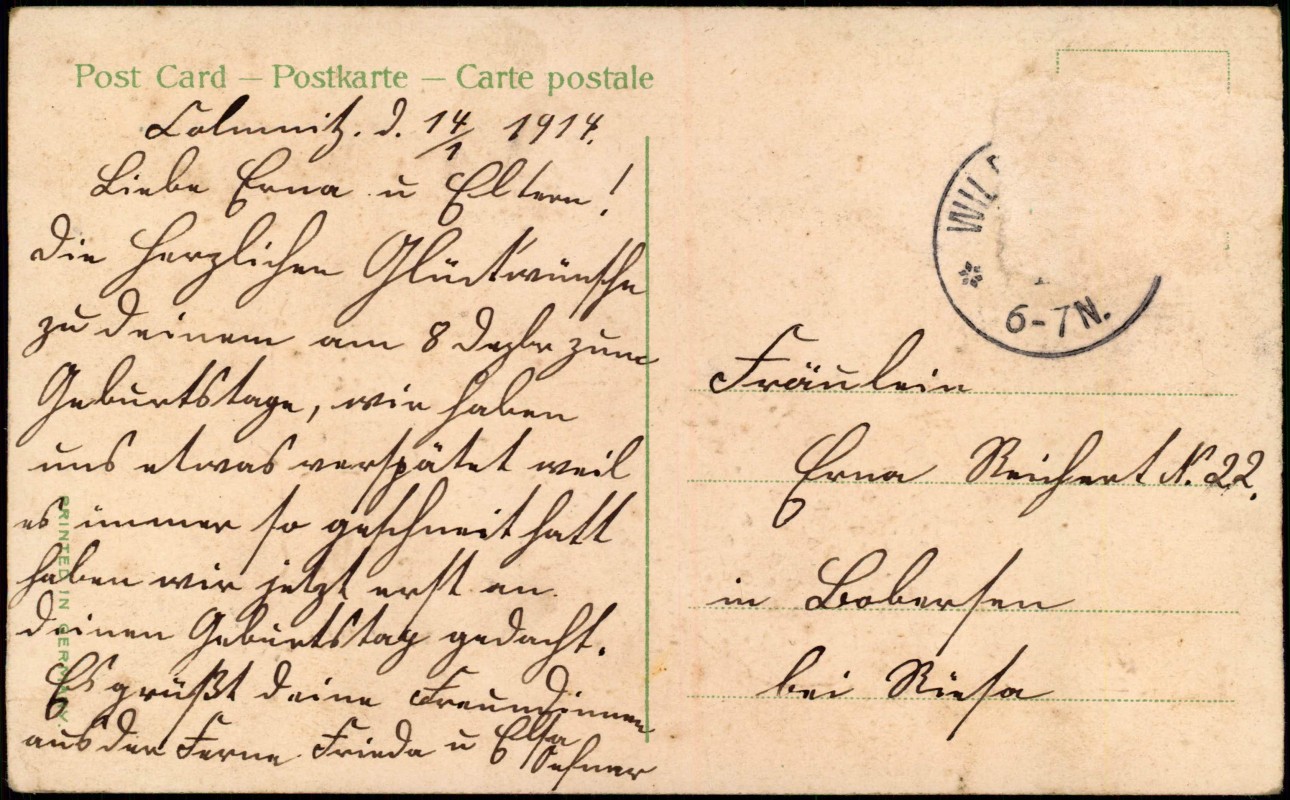 Post Card – Postkarte – Carte postale
Colmnitz. d. 14/1 1914.
Liebe Erna u Eltern!
Die herzlichen Glückwünsche
zu deinem am 8 Dezbr zum
Geburtstage, wir haben
uns etwas verspätet weil
es immer so geschneit hatt
haben wir jetzt erst an
deinen Geburtstag gedacht.
Es grüßt deine Freundinnen
aus der Ferne Frieda u Elsa
PRINTED IN GERMANY.
WILD
6-7N.
Fräulein
Erna Reichert N. 22.
in Bobersen
bei Riesa